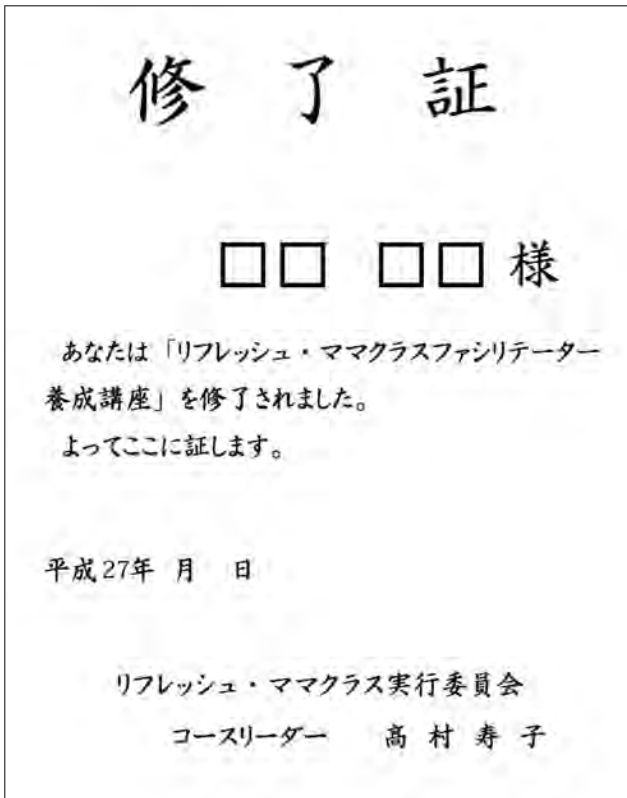 修 了 証
□□ □□ 様
あなたは「リフレッシュ・ママクラスファシリテーター
養成講座」を修了されました。
よってここに証します。
平成27年 月 日
リフレッシュ・ママクラス実行委員会
コースリーダー 髙 村 寿 子